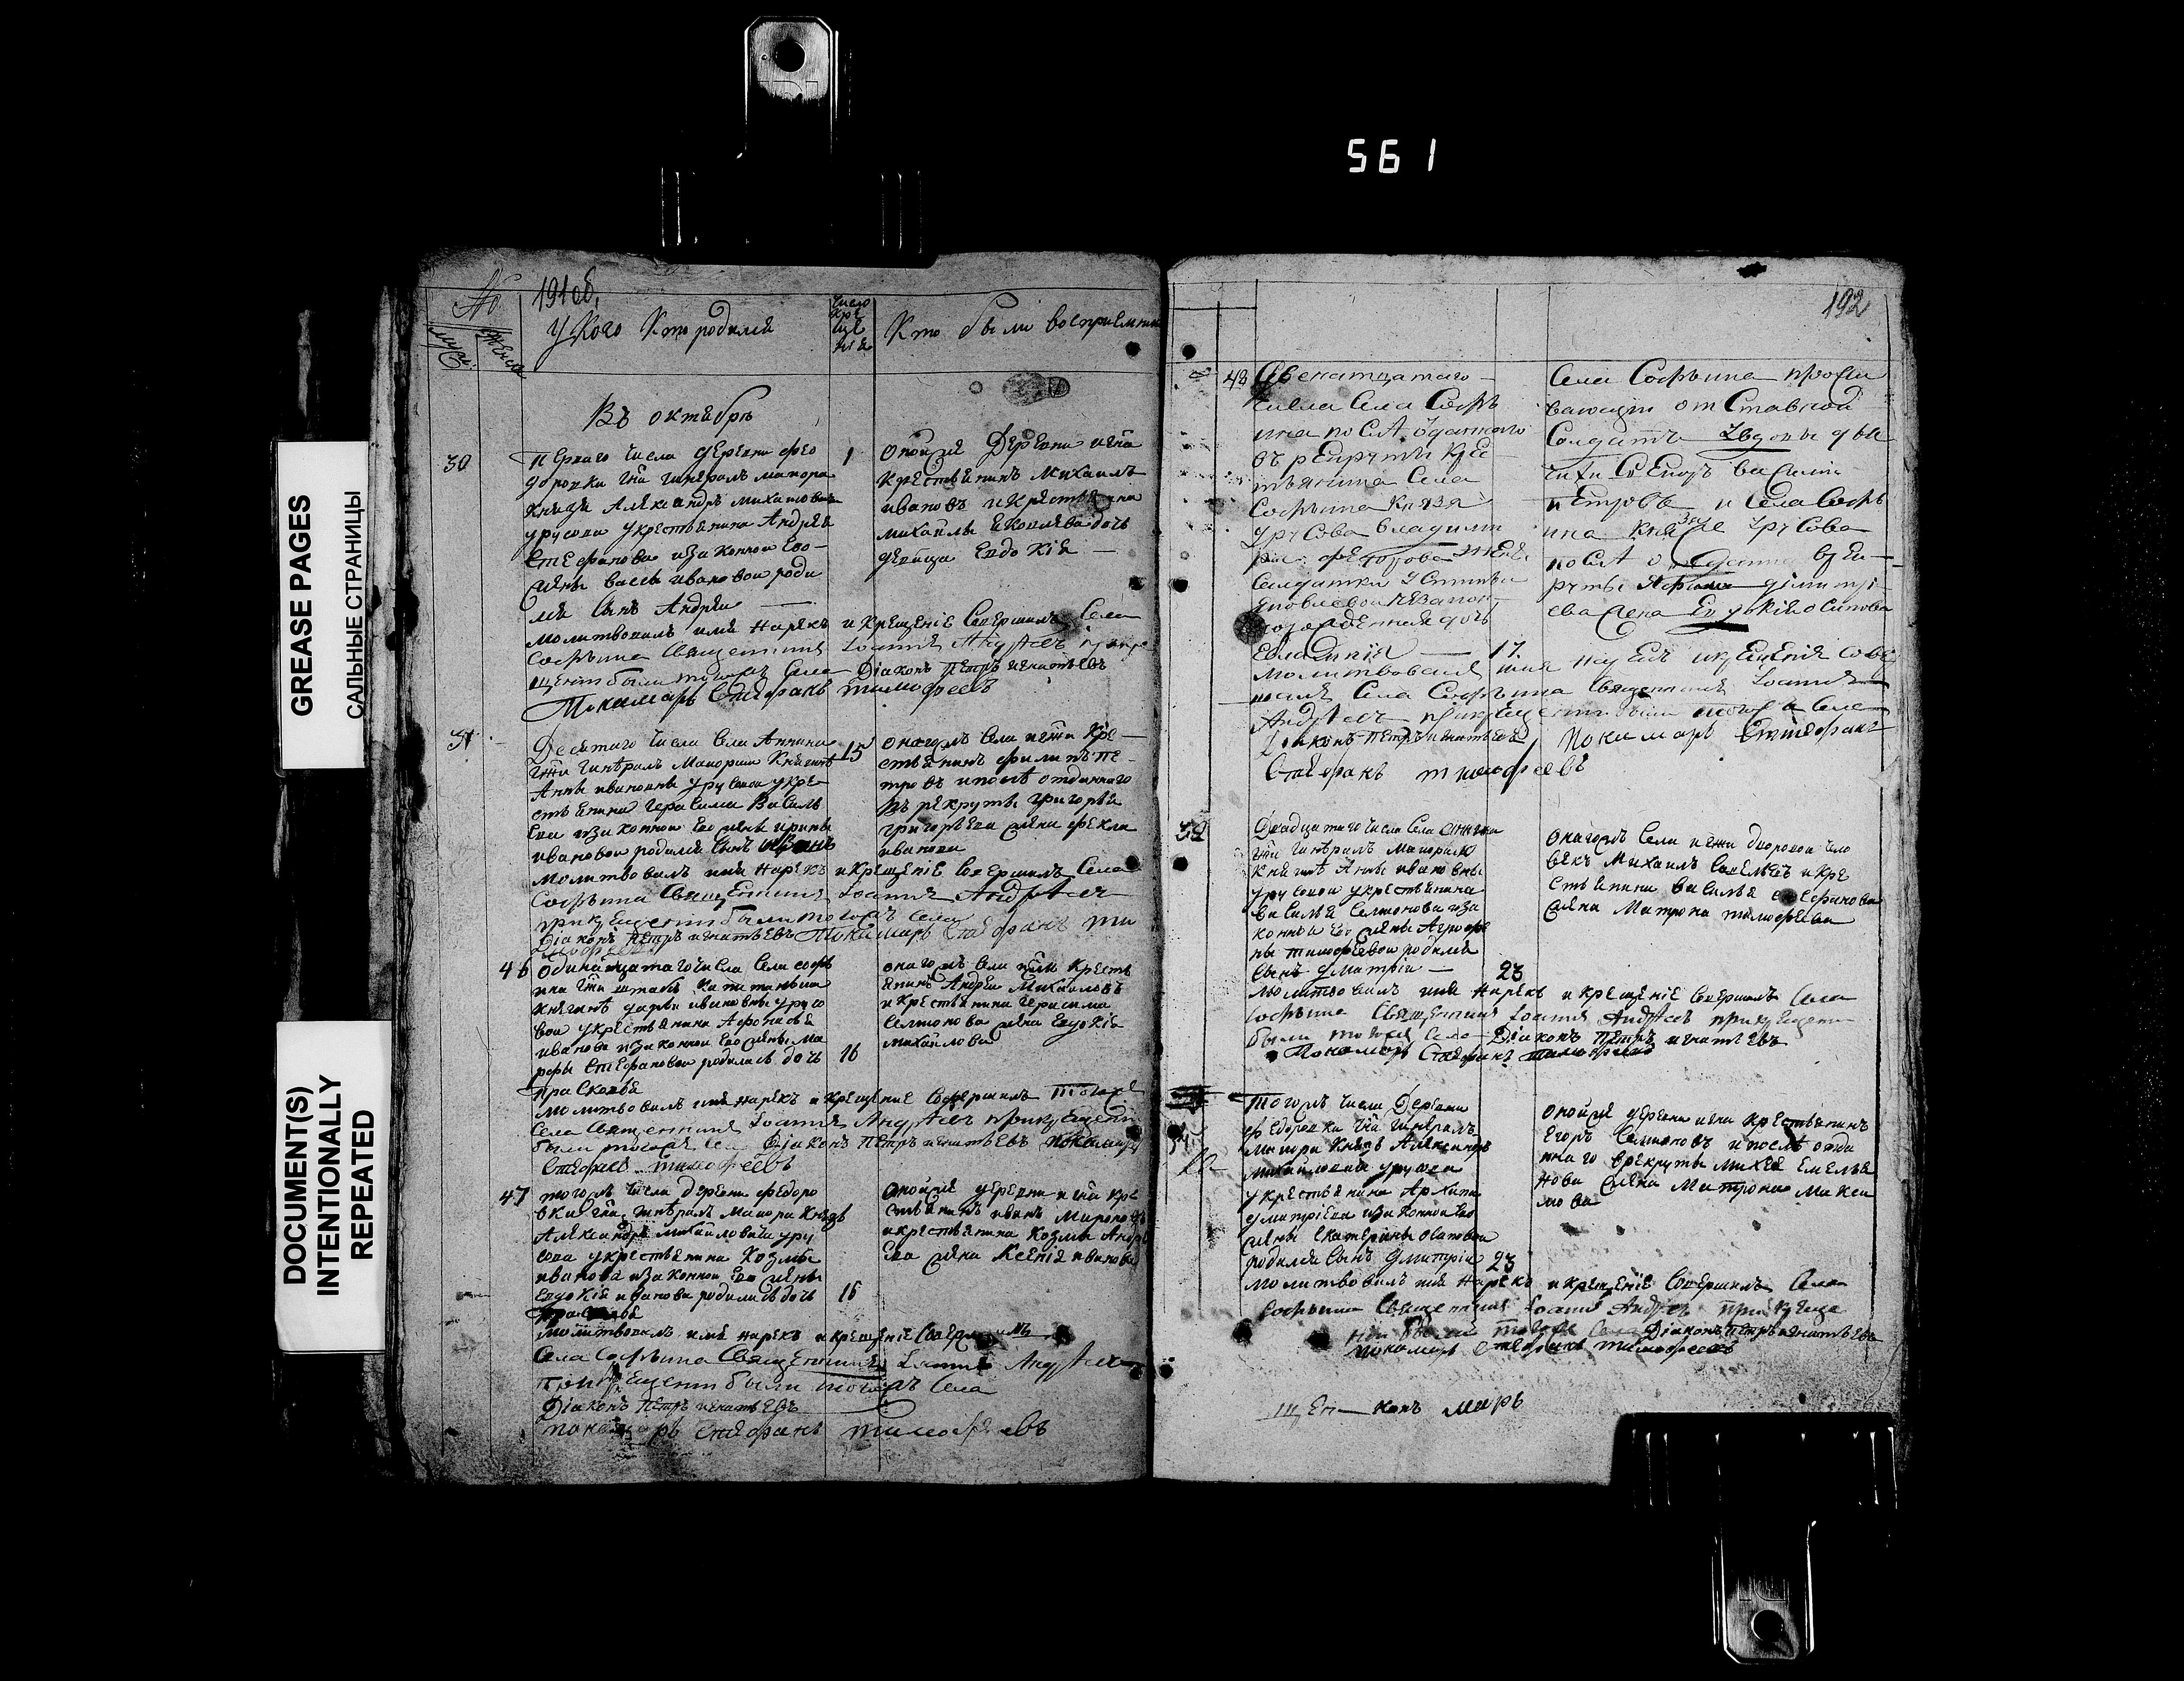 561
GREASE PAGES
САЛЬНЫЕ СТРАНИЦЫ
DOCUMENT(S)
INTENTIONALLY
REPEATED
№
191 об.
муж.
женск
У кого кто родился
число
кре
ще
нія
Кто были восприемники
Въ октябрѣ
30
перваго числа деревни фео
доровки Гна генералъ маиора
князя Александръ михаиловича
урусова укрестьянина Андрея
Стефанова иза конной Его
жены василисы ивановой роди
лся сынъ Андреи
1
Оной же Деревни и гна
крестьянинъ Михаилъ
ивановъ и крестьянина
михаилы дочь
девица Евдокія
молитвовалъ имя нарекъ и крещеніе совершилъ Села
Софьина Священникъ Іоаннъ Андреевъ
щеніи были тогожъ Села Діаконъ Петръ игнатьевъ
Пономарь Стефанъ тимофеевъ
31
Десятаго числа Села Аннина
Гжи генералъ Маиорши Княгинѣ
Анны ивановны урусовой укре
стьянина герасима Василь
ева иза конной Его жены ирины
ивановой родился сынъ
15
Онагожъ Села и гжи кре
стьянинъ филипъ пе
тровъ и послѣ отданнаго
въ рекруты григорья
григорьева жена фекла
иванова
молитвовалъ имя нарекъ и крещеніе совершилъ Села
Софьина Священникъ Іоаннъ Андреевъ
при крещеніи были тогожъ села
Діаконъ Петръ игнатьевъ Пономарь Стефанъ ти
мофеевъ
46
Одинатцатаго числа Села софь
ина Гжи штабъ капитанши
княгинѣ дарьи ивановны урусо
вой укрестьянина Афонасья
иванова иза конной Его жены ма
рфы Стефановой родилась дочь
прасковья
16
онагожъ Села и гжи кресть
янинъ Андреи Михаиловъ
и крестьянина герасима
Семионова жена Евдокія
михаилова
молитвовалъ имя нарекъ и крещение совершилъ тогоже
Села Священникъ Іоаннъ Андреевъ при крещеніи
были тогоже Діаконъ Петръ игнатьевъ пономарь
Стефанъ тимофеевъ
47
тогожъ числа деревни федоро
вки гна генералъ маиора Князь
Александра михаиловича уру
сова укрестьянина Козмы
иванова иза конной Его жены
Евдокіи ивановы родилась дочь
прасковья
16
Оной же деревни и гна кре
стьянинъ иванъ Мироновъ
и крестьянина Козмы Андре
ева жена Ксенія иванова
молитвовалъ имя нарекъ и крещеніе Совершилъ
Села Софьина Священникъ Іоаннъ Андреевъ
при крещеніи были тогожъ Села
Діаконъ Петръ игнатьевъ
пономарь Стефанъ тимофеевъ
192
48
числа Села Софь
ина послѣ отданнаго
въ рекруты кре
стьянина Села
Софьина Князя
Урусова Владими
ра федорова жены
Салдатки Устиньи
дочь
Евдокія
17.
Села Софьина прожи
вающии отставной
Салдатъ
василіи
Петровъ и Села Софь
ина Князе Урусова
послѣ
дмитрі
ева жена Евдокія осипова
молитвовалъ имя нарекъ и крещеніе сове
шалъ Села Софьина Священникъ Іоаннъ
Андреевъ при крещеніи были тогожъ Села
Діаконъ Петръ игнатьевъ Пономарь Стефанъ
Стефанъ тимофеевъ
32
Двадцатаго числа Села Аннина
гжи генералъ маиорши
Княгинѣ Анны ивановны
урусовой укрестьянина
василья Семионова иза
конной Его жены Агрофе
ны тимофеевой родился
сынъ дмитріи
23
Онагожъ Села и гжи дворовой чело
векъ Михаилъ и кре
стьянина василья Стефанова
жена Матрона тимофеева
молитвовалъ имя нарекъ и крещеніе совершилъ Села
Софьина Священникъ Іоаннъ Андреевъ при крещеніи
были тогоже Села Діаконъ Петръ игнатьевъ
Пономарь Стефанъ тимофеевъ
Тогожъ числа Деревни
федоровки гна генералъ
маиора Князь Александръ
михаиловича урусова
укрестьянина Архипа
дмитріева иза конной Его
жены Екатерины осиповой
родился сынъ дмитріи
23
Оной же деревни и гна крестьянинъ
Егоръ Семионовъ и послѣ отда
ннаго врекруты михея Емелья
нова жена Матрона макси
мова
молитвовалъ имя нарекъ и крещеніе совершилъ Села
Софьина Священникъ Іоаннъ Андреевъ при креще
ніи были тогоже Села Діаконъ Петръ игнатьевъ
пономарь Стефанъ тимофеевъ